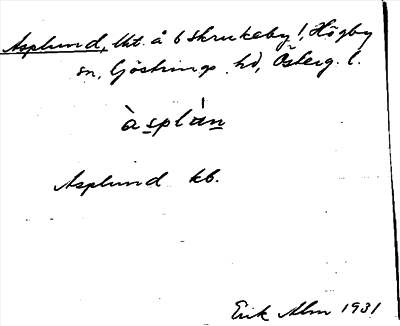 Asplund, lht. å 6 Skrukeby 1, Högby
sn, Göstrings hd, Österg. l.
àsplàn
Asplund kb.
Erik Alm 1931